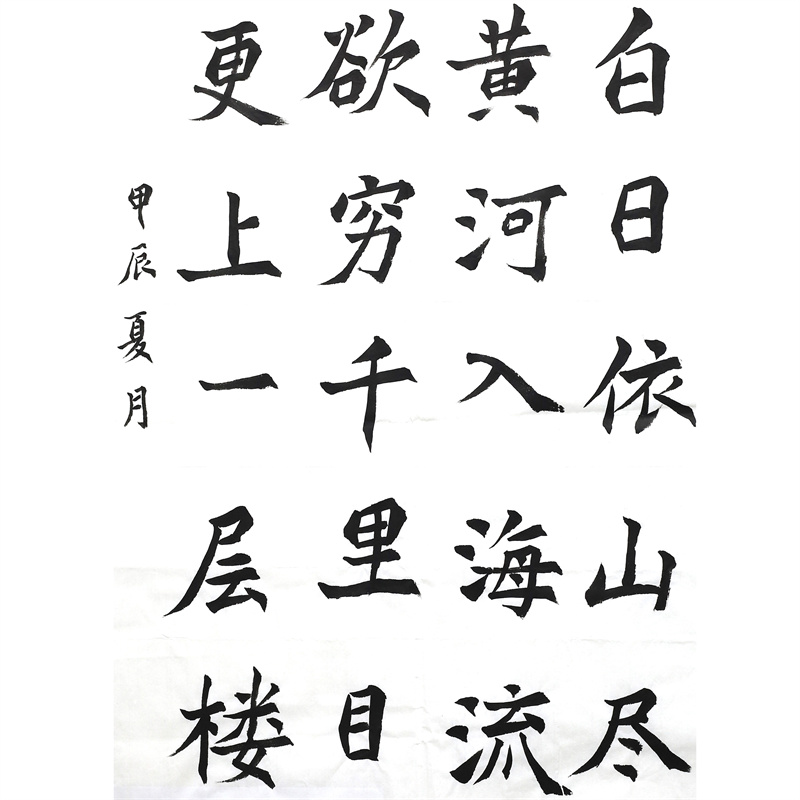 白日依山尽
黄河入海流
欲穷千里目
更上一层楼
甲辰夏月